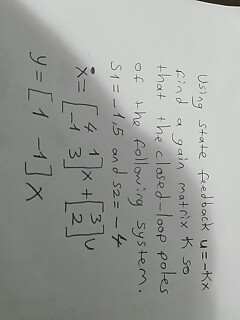 Using state feedback u=-Kx
find a gain matrix K so
that the closed-loop poles
of the following system.
S1=-1.5 and s2=-4
ẋ=[4 1
-1 3]x+[3
2]u
y=[1 -1]x